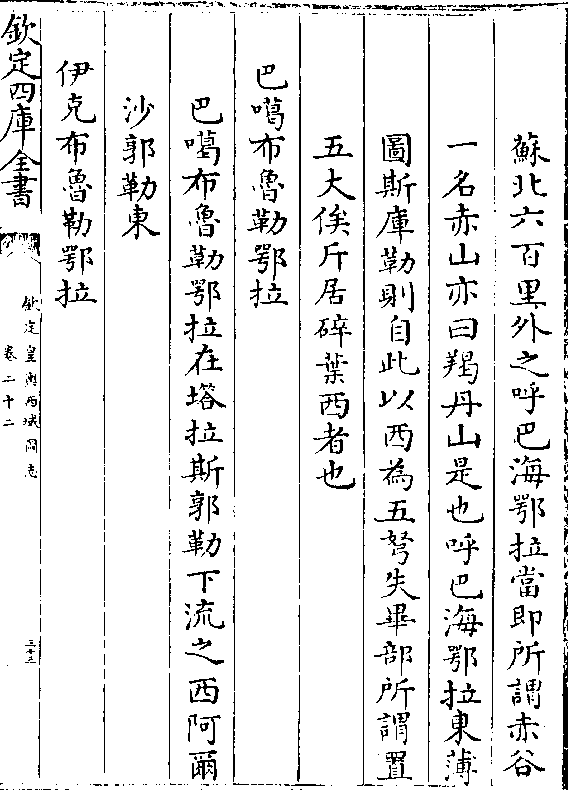 蘇北六百里外之呼巴海鄂拉當即所謂赤谷
一名赤山亦曰羯丹山是也呼巴海鄂拉東薄
圖斯庫勒則自此以西為五弩失畢部所謂置
五大俟斤居碎葉西者也
巴噶布魯勒鄂拉
巴噶布魯勒鄂拉在塔拉斯郭勒下流之西阿爾
沙郭勒東
伊克布魯勒鄂拉
欽定四庫全書
欽定皇輿西域圖志
卷二十二
三十三